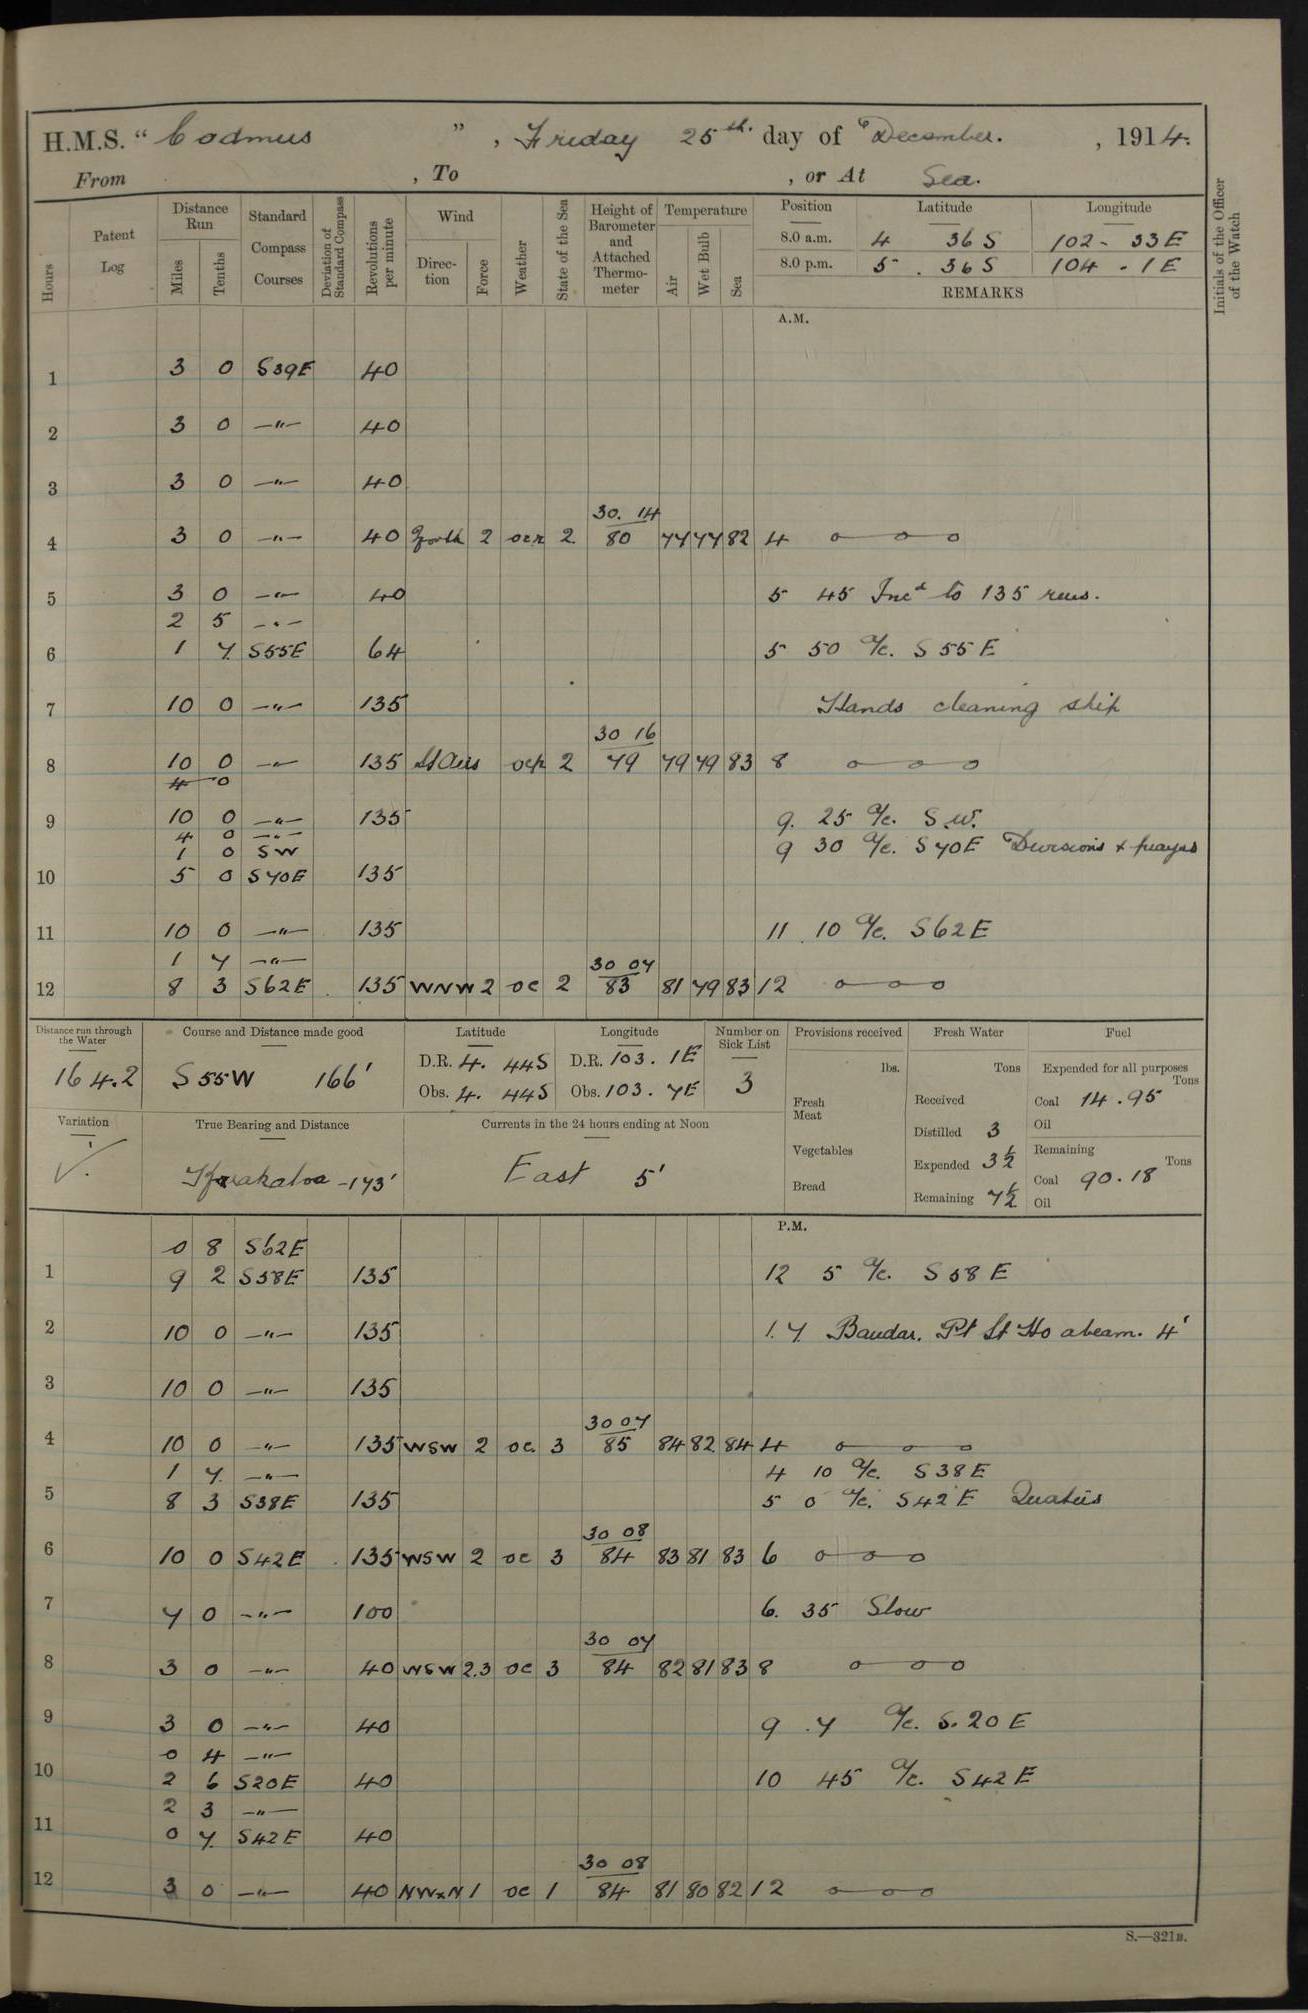 H.M.S. " Cadmus ", Friday 25th. day of December. , 1914.
From , To , or At Sea.
Hours Patent Log Distance Run Miles Tenths Standard Compass Courses Deviation of Standard Compass Revolutions per minute Wind Direction Force Weather State of the Sea Height of Barometer and Attached Thermometer Temperature Air Wet Bulb Sea Position Latitude Longitude Initials of the Officer of the Watch
8.0 a.m. 4 36 S 102 - 33 E
8.0 p.m. 5 . 36 S 104 . 1 E
REMARKS
A.M.
1 3 0 S39E 40
2 3 0 —"— 40
3 3 0 —"— 40
30. 14
4 3 0 —"— 40 North 2 2 80 77 77 82 4 o—o—o
5 3 0 —"— 40 5 45 Incd to 135 revs.
2 5 —"—
6 1 7 S55E 64 5 50 a/c. S 55 E
7 10 0 —"— 135 Hands cleaning ship
30 16
8 10 0 —"— 135 Lt Airs ocp 2 79 79 79 83 8 o—o—o
4 0
9 10 0 —"— 135 9. 25 a/c. S.W.
4 0 —"—
1 0 SW 9 30 a/c. S 70 E Divisions & prayers
10 5 0 S70E 135
11 10 0 —"— 135 11 . 10 a/c. S62E
1 7 —"— 30 07
12 8 3 S62E 135 WNW 2 oc 2 83 81 79 83 12 o—o—o
Distance run through the Water Course and Distance made good Latitude Longitude Number on Sick List Provisions received Fresh Water Fuel
164.2 S 55 W 166' D.R. 4. 44S D.R. 103. 1E 3 lbs. Tons Expended for all purposes Tons
Obs. 4. 44S Obs. 103. 7E Fresh Meat Received Coal 14.95
Variation True Bearing and Distance Currents in the 24 hours ending at Noon Distilled 3 Oil
Krakatoa - 173' East 5' Vegetables Expended 3½ Remaining Tons
Bread Remaining 7½ Coal 90.18
Oil
P.M.
0 8 S62E
1 9 2 S58E 135 12 5 a/c. S 58 E
2 10 0 —"— 135 1. 7. Pt Lt Ho abeam. 4'
3 10 0 —"— 135
30 07
4 10 0 —"— 135 WSW 2 oc. 3 85 84 82 84 4 o—o—o
1 7. —"— 4 10 a/c. S38E
5 8 3 S38E 135 5 0 a/c. S42E Quarters
30 08
6 10 0 S42E 135 WSW 2 oc 3 84 83 81 83 6 o—o—o
7 7 0 —"— 100 6. 35 Slow
30 07
8 3 0 —"— 40 WSW 2.3 oc 3 84 82 81 83 8 o—o—o
9 3 0 —"— 40 9 .7 a/c. S.20 E
0 4 —"—
10 2 6 S20E 40 10 45 a/c. S42E
2 3 —"—
11 0 7. S42E 40
30 08
12 3 0 —"— 40 NWxN 1 oc 1 84 81 80 82 12 o—o—o
S.—321B.